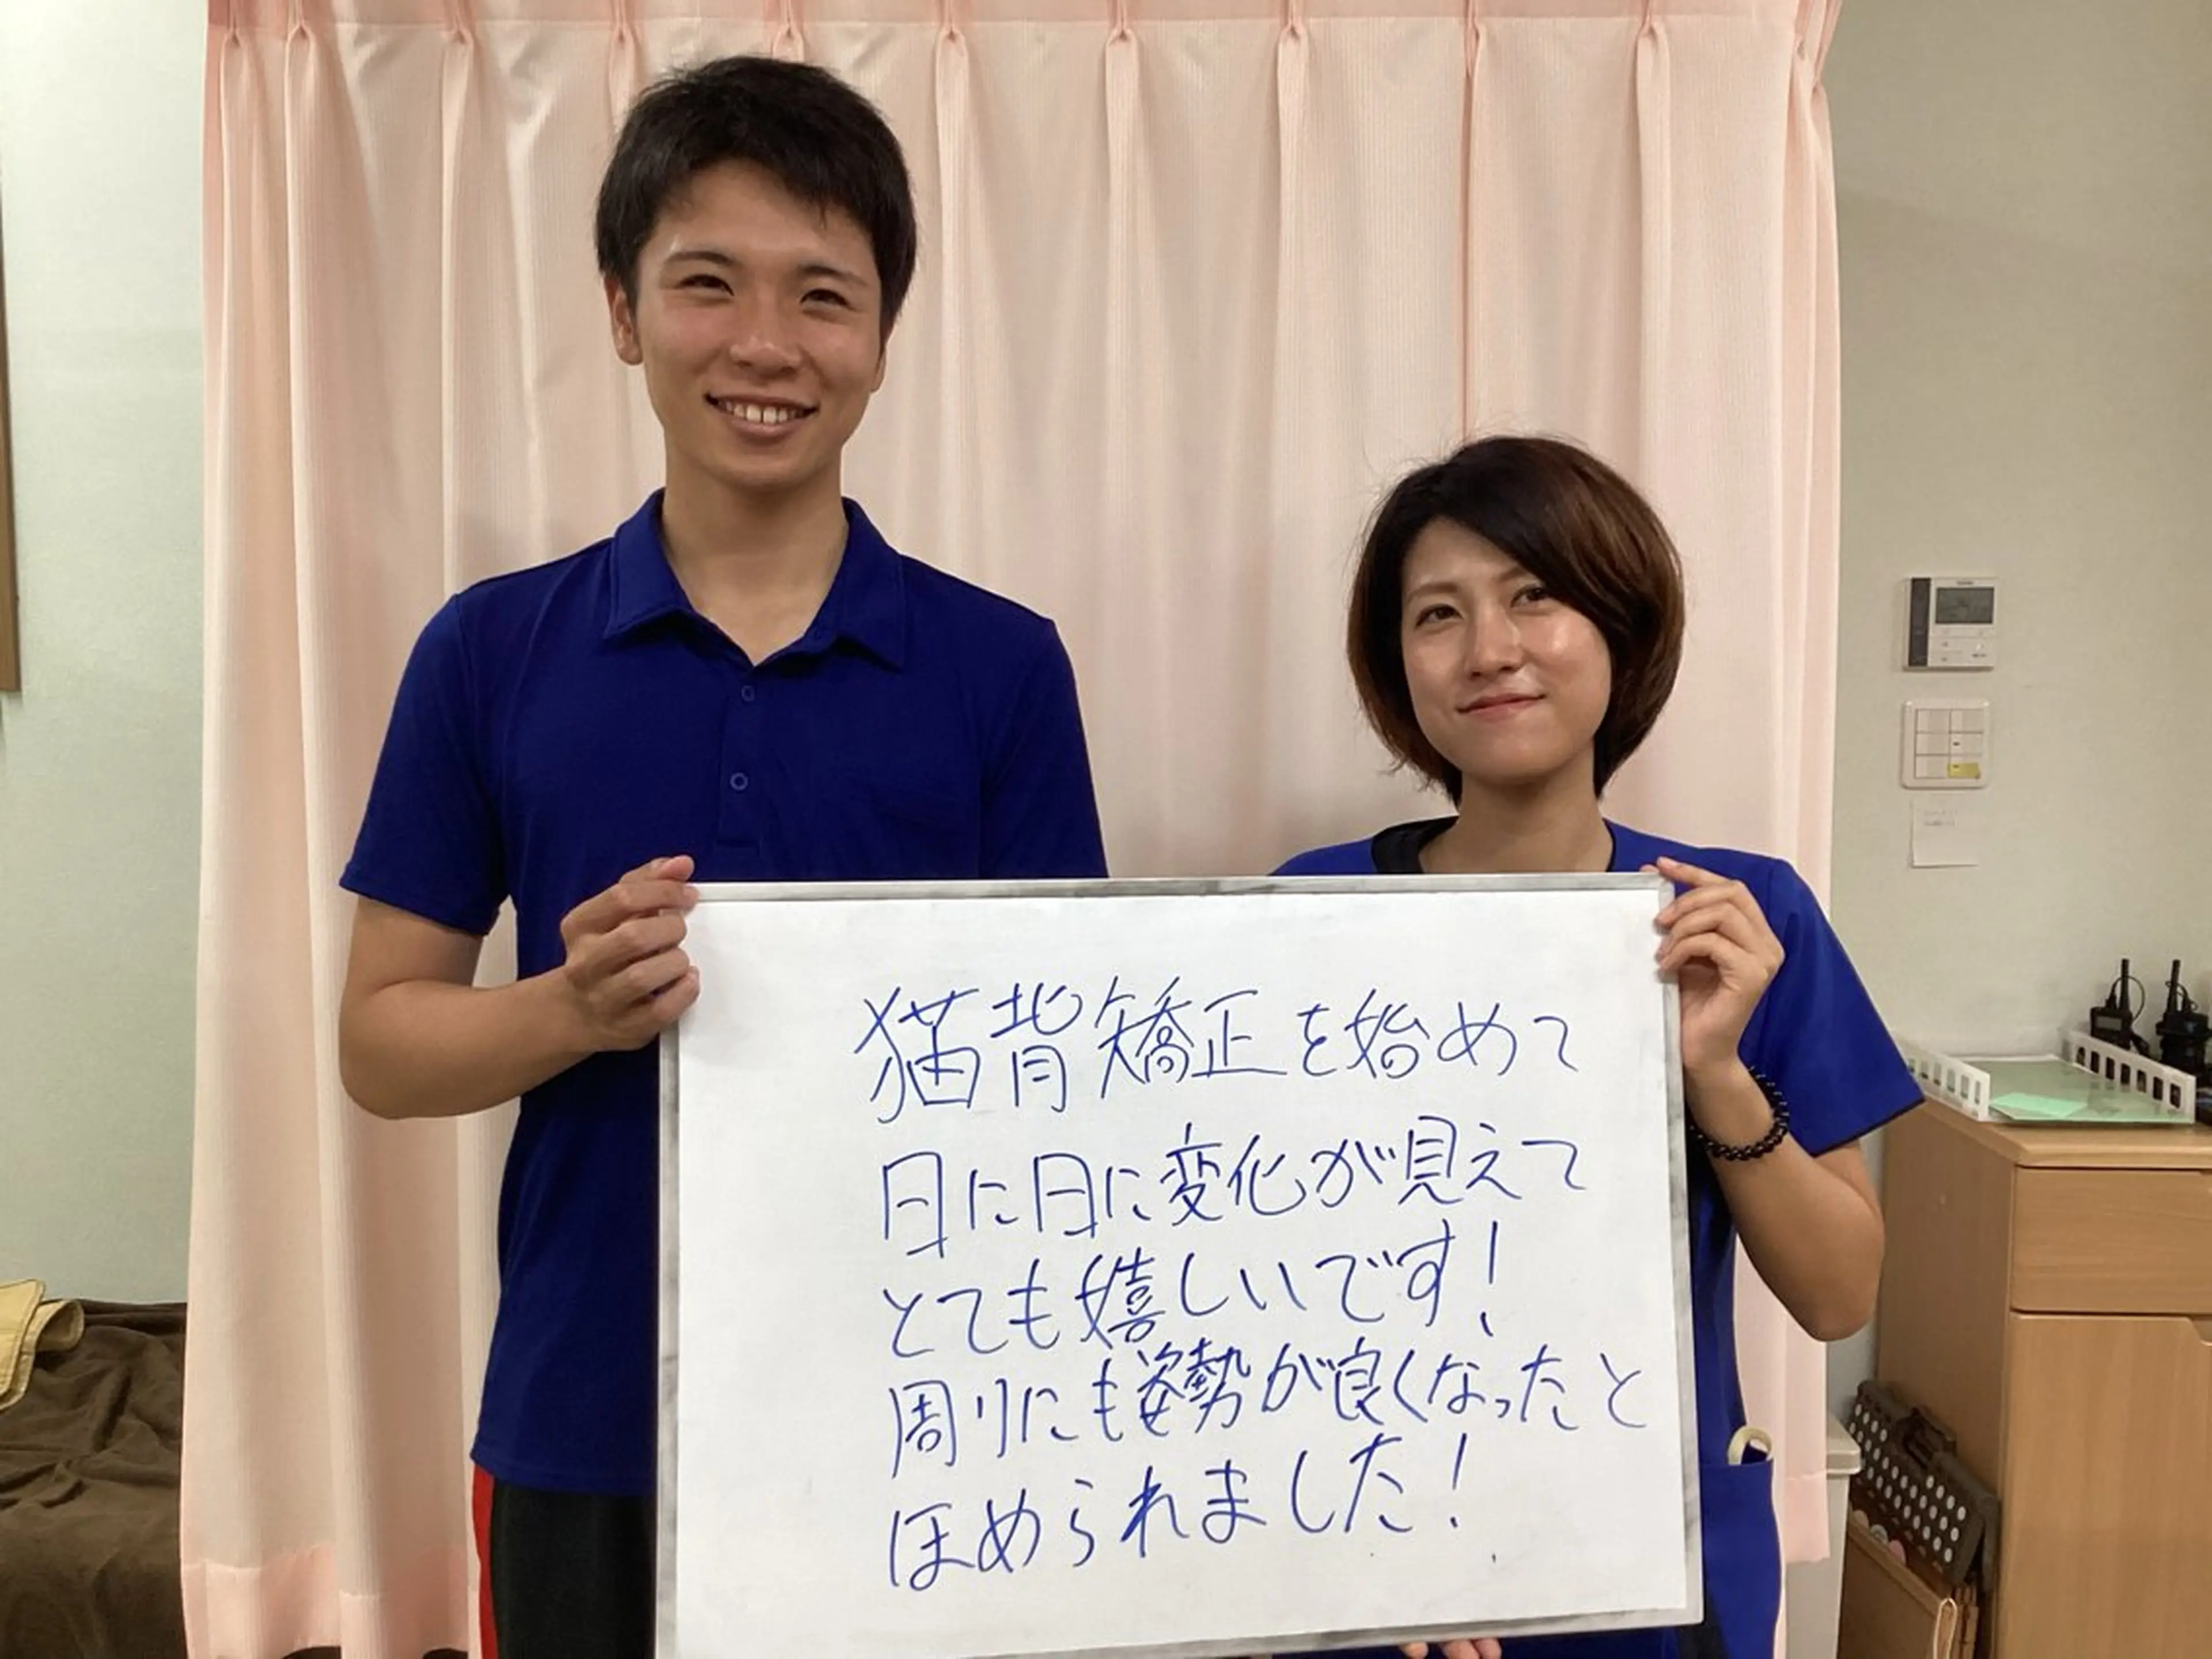 猫背矯正を始めて
日に日に変化が見えて
とても嬉しいです!
周りにも姿勢が良くなったと
ほめられました!